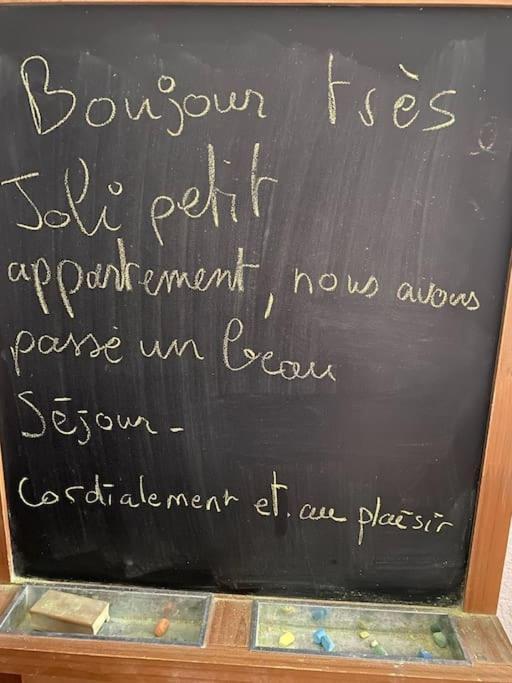 Bonjour très
Joli petit
appartement, nous avons
passé un beau
Séjour -
Cordialement et au plaisir